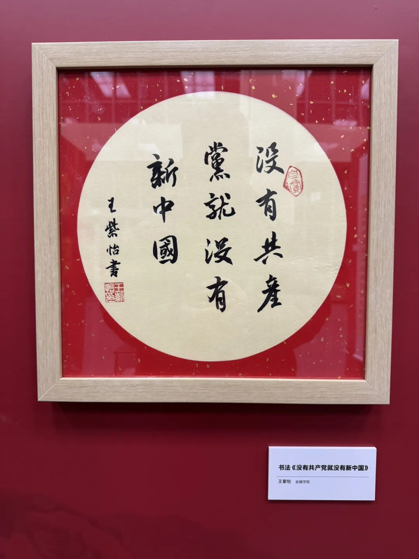 没有共產
黨就没有
新中國
王紫怡書
书法《没有共产党就没有新中国》
王紫怡 金融学院